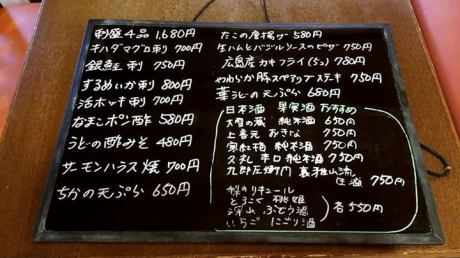 刺盛4品 1,680円
キハダマグロ刺 700円
銀鮭刺 750円
するめいか刺 800円
活ホッキ刺 700円
なまこポン酢 580円
うどの酢みそ 480円
サーモンハラス焼 700円
ちかの天ぷら 650円
たこの唐揚げ 580円
生ハムとバジルソースのピザ 750円
広島産カキフライ(5コ) 780円
やわらか豚スペアリブステーキ 750円
葉うどの天ぷら 680円
日本酒 果実酒 おすすめ
大雪の蔵 純米酒 650円
上喜元 おきな 750円
寒紅梅 純米酒 750円
久丸 辛口 純米酒 750円
九郎左衛門 裏雅山流
生酒 750円
桃のリキュール
とろこく 桃姫
深山 ぶどう酒
いちご にごり酒
各550円